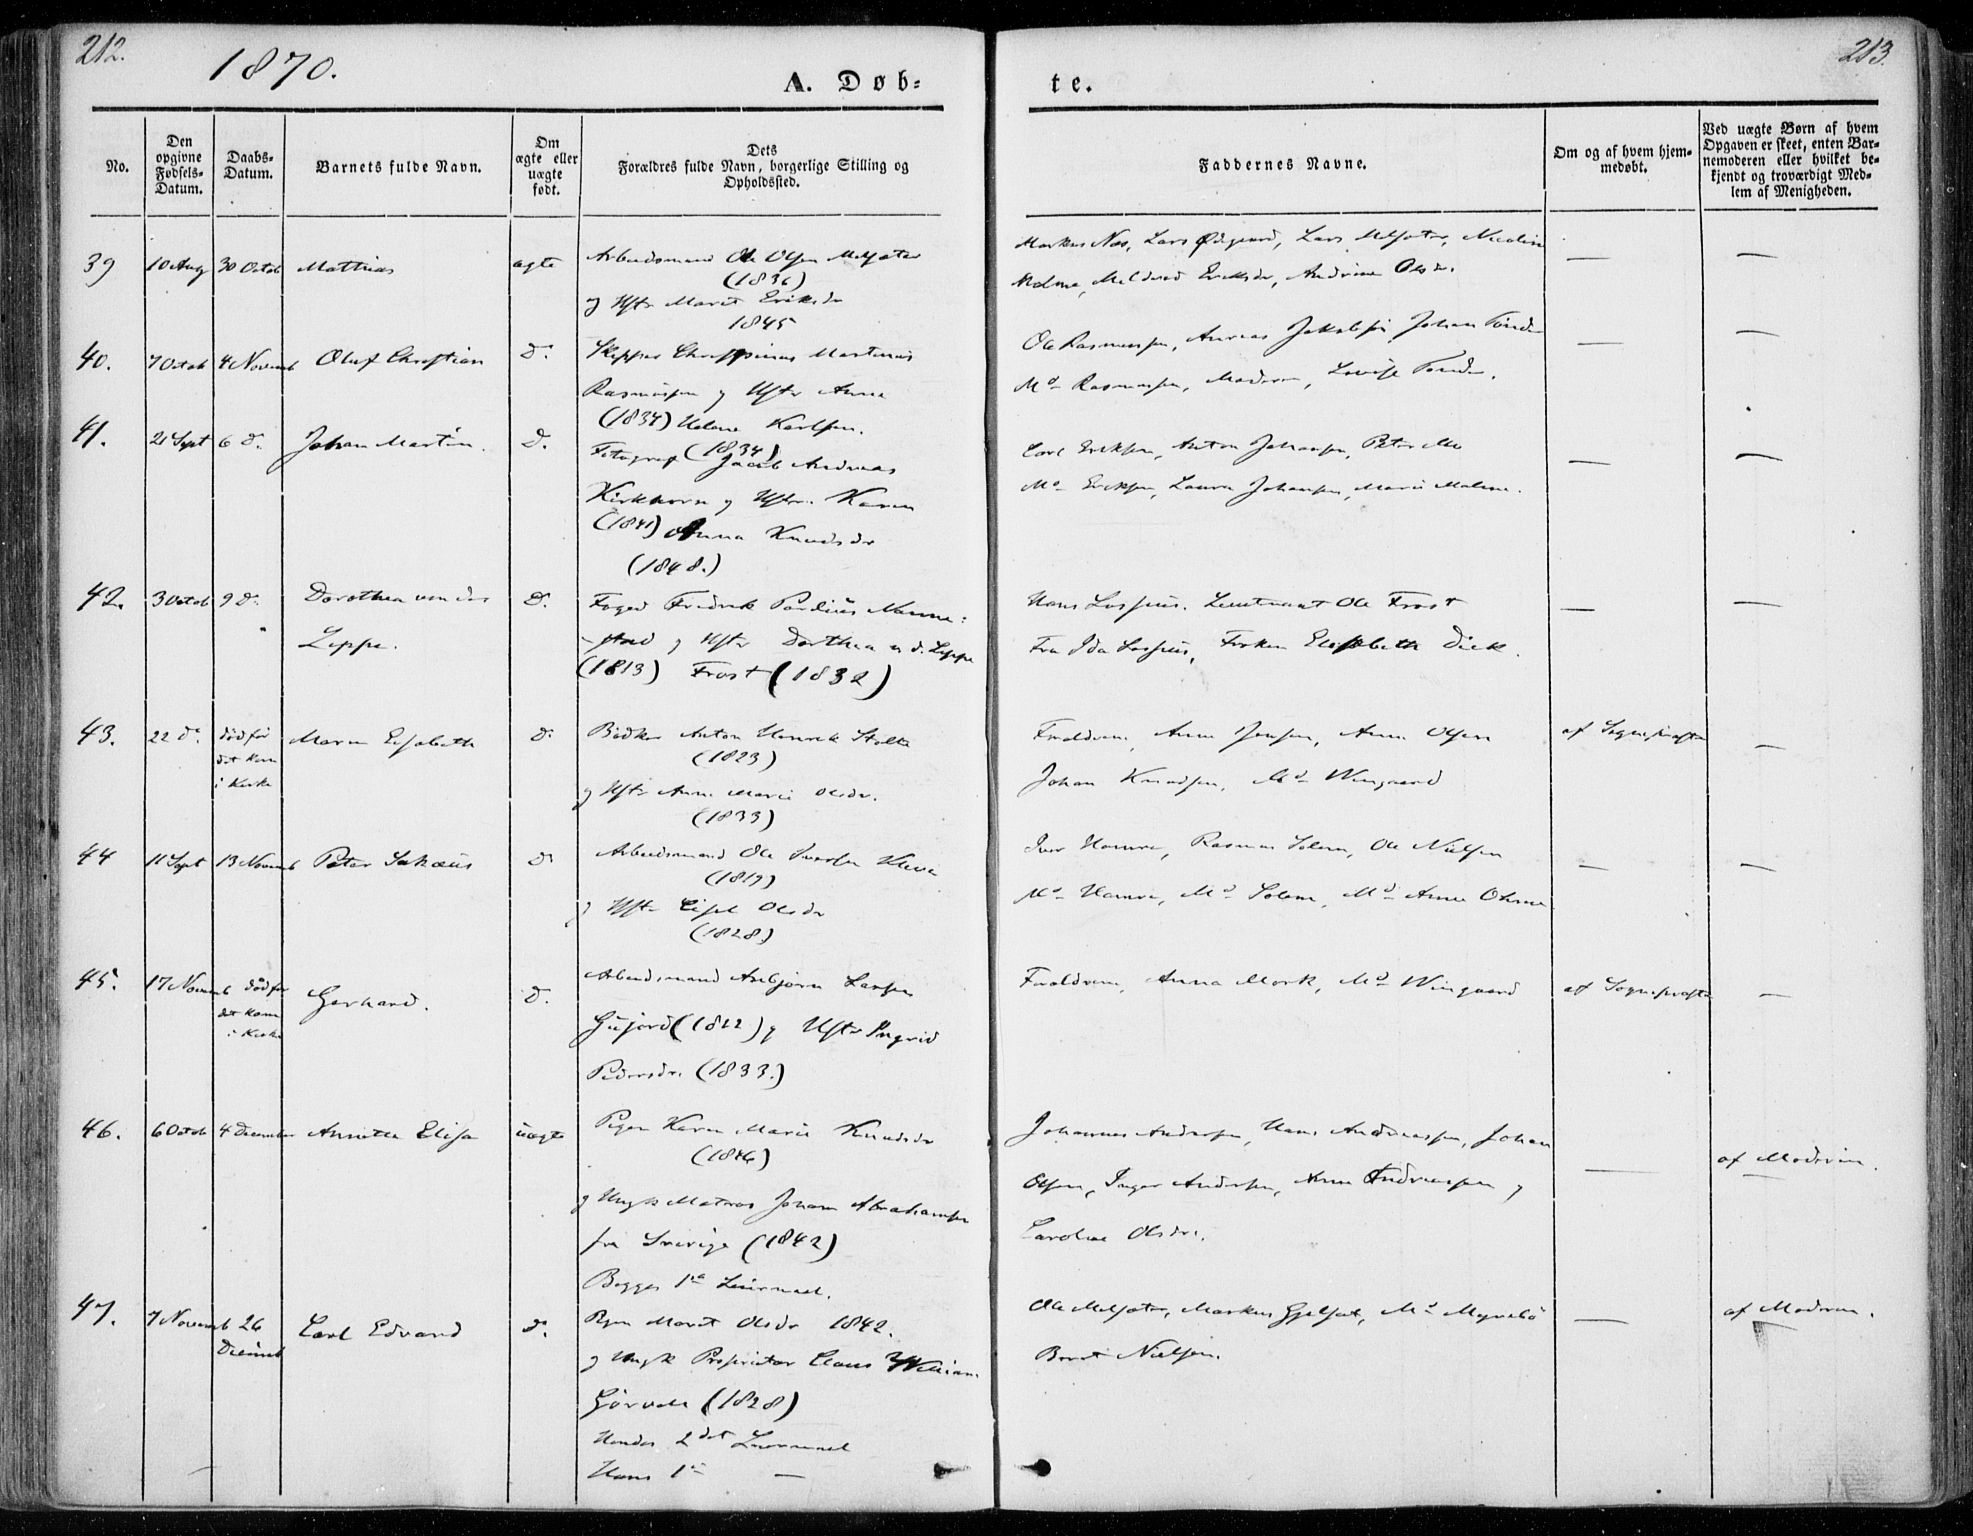 212.
1870.
A. Døb-
te.
213.
No.
Den opgivne Fødsels-Datum.
Daabs-Datum.
Barnets fulde Navn.
Om ægte eller uægte født.
Dets Forældres fulde Navn, borgerlige Stilling og Opholdssted.
Faddernes Navne.
Om og af hvem hjem-medøbt.
Ved uægte Børn af hvem Opgaven er skeet, enten Bar-nemoderen eller hvilket be-kjendt og troværdigt Med-lem af Menigheden.
39 10 Aug 30 Octob Mathias ægte Arbeidsmand Ole Olsen
(1836)
og Hstr Marit Eriksdr
1845
Markus Næs, Lars Ødegaard, Lars
Eriksdr, Andrine Olsdr.
—
—
40. 7 Octob 4 Novemb Oluf Christian D. Skipper Martinus
Rasmussen og Hstr Anna
(1834) Karlsen.
(1834)
Ole Rasmussen, Andreas Jakobsen, Johan
Md Rasmussen, Moderen, Lovise
—
—
41. 21 Sept 6 d. Johan Martin. D. Fotograf Jacob Andreas
Kirkhorn og Hstr. Karen
(1841) Anna Knudsdr
(1848.)
Carl Eriksen, Anton Johansen, Peter Mo
Md Eriksen, Laura Johansen, Marie Malene.
—
—
42. 3 Octob 9 d. Dorothea von der
Lippe.
D. Foged Fredrik Nanne-
stad og Hstr Dorthea v. d. Lippe
(1813) Frost (1832)
Hans Lossius. Lieutnant Ole Frost
Fru Ida Lossius, Frøken Elisabeth Dick.
—
—
43. 22 d. død før
det kom
i Kirke
Maren Elisabeth D. Bødker Anton Henrik Stolte
(1823)
og Hstr Anne Marie Olsdr.
(1833)
Forældrene, Anne Jensen, Anne Olsen
Johan Knudsen, Md Wingaard
af Sognepræsten
—
44 11 Sept 13 Novemb Peter Sakæus D. Arbeidsmand Ole
(1819)
og Hstr Olsdr
(1828.)
Iver Hamre, Rasmus Solem, Ole Nielsen
Md Hamre, Md Solem, Md Anne
—
—
45. 17 Novemb død før
det kom
i Kirke
Gerhard. D. Arbeidsmand Asbjørn Larsen
(1822) og Hstr Ingrid
Pedersdr. (1833.)
Forældrene, Anna Mork, Md Wingaard
af Sognepræsten
—
46. 6 Octob 4 December Annette Elisa uægte Pigen Karen Marie Knudsdr
(1846)
og Ungk Matros Johan Abrahamsen
fra Sverige (1842)
Begges 1ste Leiermaal.
Johannes Andersen, Hans Andreassen, Johan
Olsen, Inger Andersen, Anne Andreassen og
Caroline Olsdr.
—
af Moderen.
47. 7 Novemb 26
Decemb
Carl Edvard d. Pigen Marit Olsdr 1842.
og Ungk Proprietær Claus William
(1828)
Hendes 2det Leiermaal
Hans 1ste —
Ole Markus Md Myrebø
Berit Nielsen.
—
af Moderen.